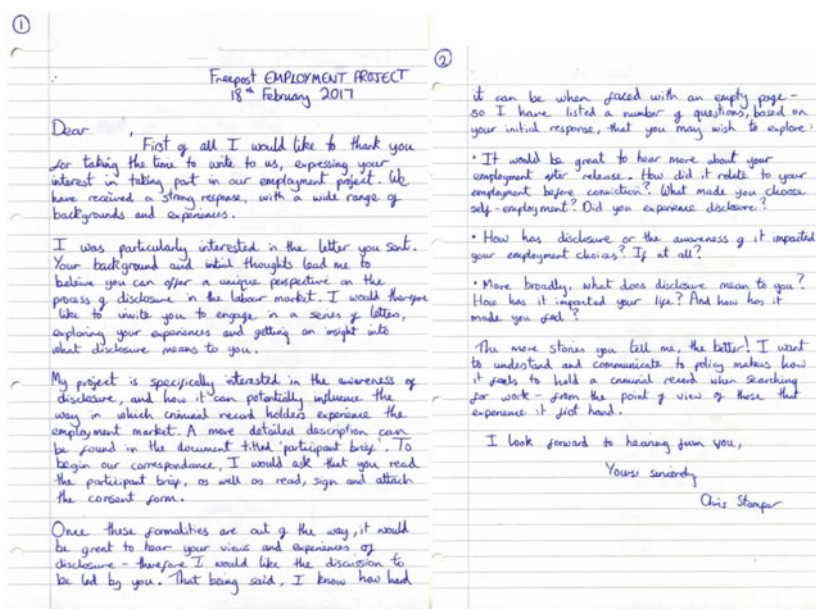 ①
Freepost EMPLOYMENT PROJECT
18th February 2017
Dear ,
First of all I would like to thank you
for taking the time to write to us, expressing your
interest in taking part in our employment project. We
have received a strong response, with a wide range of
backgrounds and experiences.
I was particularly interested in the letter you sent.
Your background and initial thoughts lead me to
believe you can offer a unique perspective on the
process of disclosure in the labour market. I would therefore
like to invite you to engage in a series of letters,
exploring your experiences and getting an insight into
what disclosure means to you.
My project is specifically interested in the awareness of
disclosure, and how it can potentially influence the
way in which criminal record holders experience the
employment market. A more detailed description can
be found in the document titled 'participant brief'. To
begin our correspondence, I would ask that you read
the participant brief, as well as read, sign and attach
the consent form.
Once these formalities are out of the way, it would
be great to hear your views and experiences of
disclosure - therefore I would like the discussion to
be led by you. That being said, I know how hard
②
it can be when faced with an empty page -
so I have listed a number of questions, based on
your initial response, that you may wish to explore:
• It would be great to hear more about your
employment after release. How did it relate to your
employment before conviction? What made you choose
self-employment? Did you experience disclosure?
• How has disclosure or the awareness of it impacted
your employment choices? If at all?
• More broadly, what does disclosure mean to you?
How has it impacted your life? And how has it
made you feel?
The more stories you tell me, the better! I want
to understand and communicate to policy makers how
it feels to hold a criminal record when searching
for work - from the point of view of those that
experience it first hand.
I look forward to hearing from you,
Yours sincerely
Chris Stamper